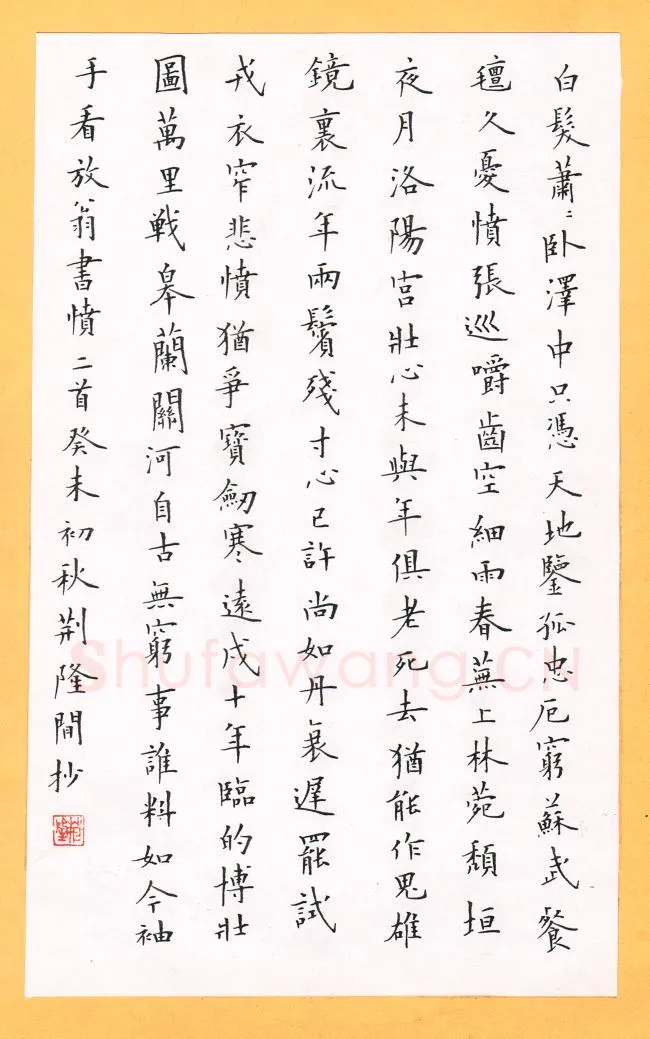 白髮蕭〻卧澤中只憑天地鑒孤忠厄窮蘇武餐
氊久憂憤張巡嚼齒空細雨春蕪上林菀頹垣
夜月洛陽宮壯心未與年俱老死去猶能作鬼雄
鏡裏流年兩鬢殘寸心已許尚如丹衰遲罷試
戎衣窄悲憤猶爭寶劒寒遠戍十年臨的博壯
圖萬里戰皋蘭關河自古無窮事誰料如今袖
手看放翁書憤二首癸未初秋荊隆間抄
Shufawang.CN